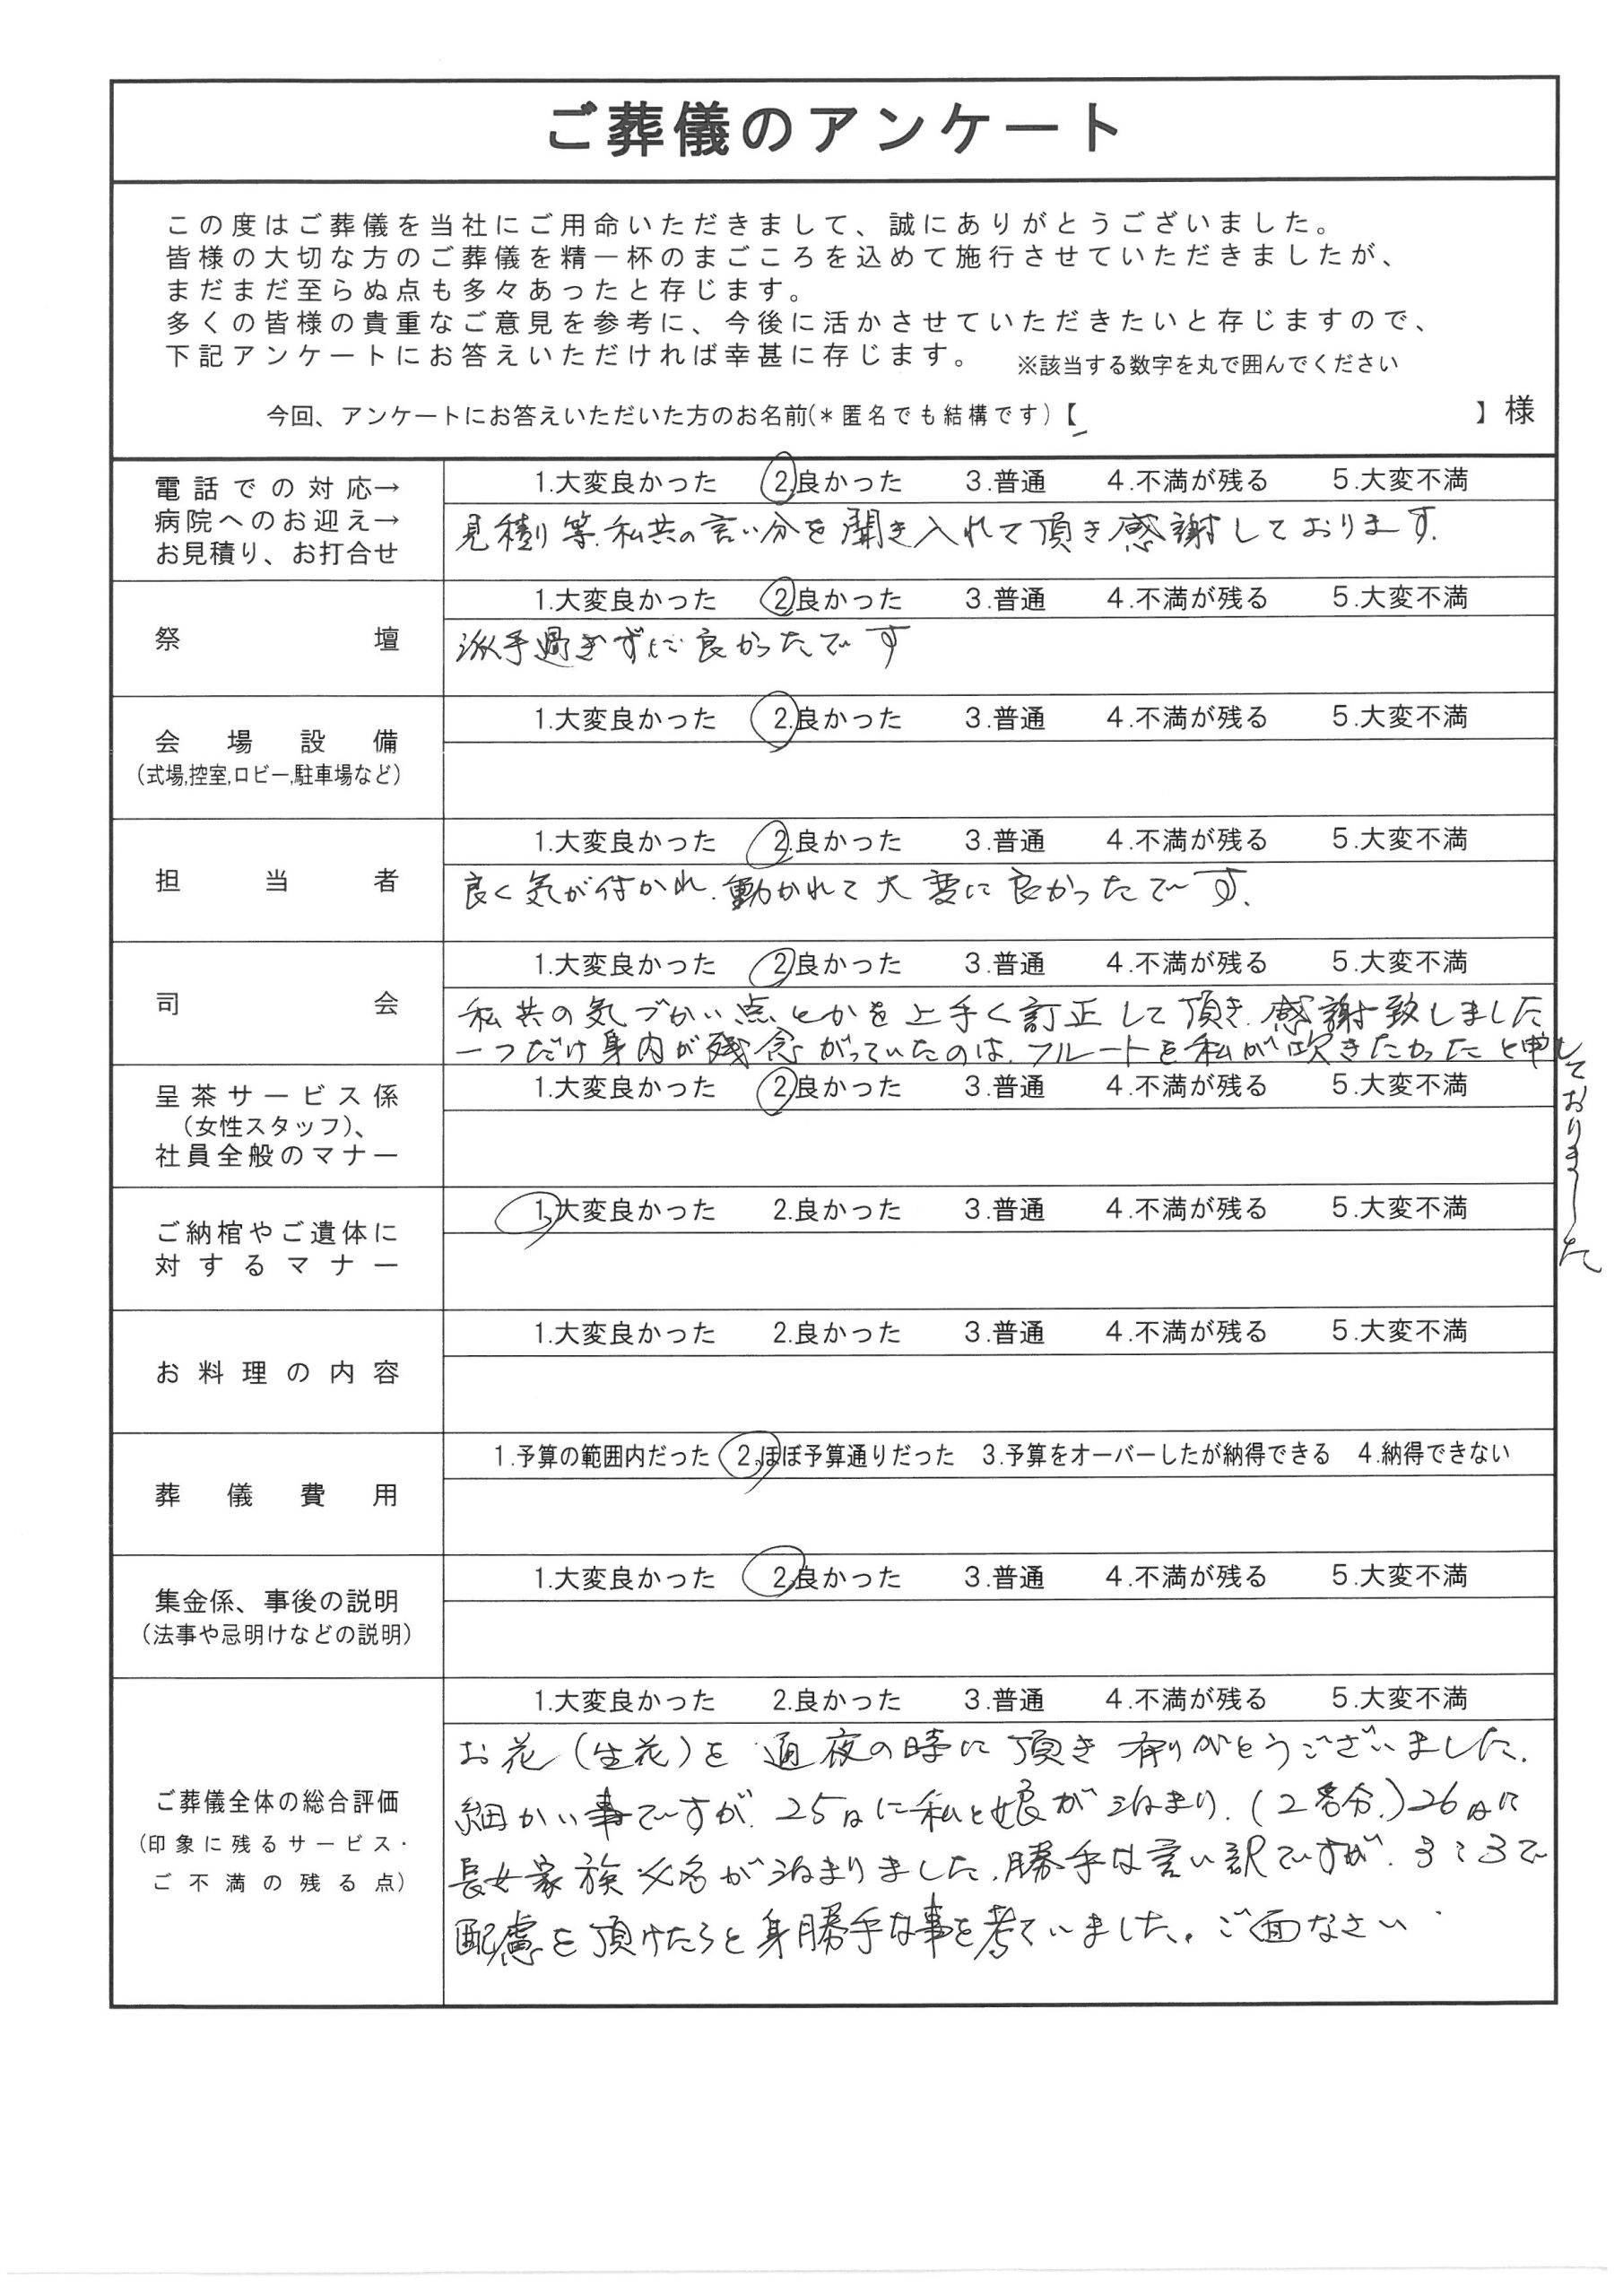 ご葬儀のアンケート
この度はご葬儀を当社にご用命いただきまして、誠にありがとうございました。
皆様の大切な方のご葬儀を精一杯のまごころを込めて施行させていただきましたが、
まだまだ至らぬ点も多々あったと存じます。
多くの皆様の貴重なご意見を参考に、今後に活かさせていただきたいと存じますので、
下記アンケートにお答えいただければ幸甚に存じます。 ※該当する数字を丸で囲んでください
今回、アンケートにお答えいただいた方のお名前(*匿名でも結構です)【 】様
電話での対応→
病院へのお迎え→
お見積り、お打合せ
1.大変良かった 2.良かった 3.普通 4.不満が残る 5.大変不満
見積り等、私共の言い分を聞き入れて頂き感謝しております.
祭壇
1.大変良かった 2.良かった 3.普通 4.不満が残る 5.大変不満
派手過ぎずに良かったです
会場設備
(式場,控室,ロビー,駐車場など)
1.大変良かった 2.良かった 3.普通 4.不満が残る 5.大変不満
担当者
1.大変良かった 2.良かった 3.普通 4.不満が残る 5.大変不満
良く気が付かれ.動かれて大変に良かったです.
司会
1.大変良かった 2.良かった 3.普通 4.不満が残る 5.大変不満
私共の気づかい点とかを上手く訂正して頂き.感謝致しました
一つだけ身内が残念がっていたのは.フルートを私が吹きたかったと申し
ておりました
呈茶サービス係
(女性スタッフ)、
社員全般のマナー
1.大変良かった 2.良かった 3.普通 4.不満が残る 5.大変不満
ご納棺やご遺体に
対するマナー
1.大変良かった 2.良かった 3.普通 4.不満が残る 5.大変不満
お料理の内容
1.大変良かった 2.良かった 3.普通 4.不満が残る 5.大変不満
葬儀費用
1.予算の範囲内だった 2.ほぼ予算通りだった 3.予算をオーバーしたが納得できる 4.納得できない
集金係、事後の説明
(法事や忌明けなどの説明)
1.大変良かった 2.良かった 3.普通 4.不満が残る 5.大変不満
ご葬儀全体の総合評価
(印象に残るサービス・
ご不満の残る点)
1.大変良かった 2.良かった 3.普通 4.不満が残る 5.大変不満
お花(生花)を通夜の時に頂き有りがとうございました.
細かい事ですが.25日に私と娘が泊まり.(2名分.)26日に
長女家族 名が泊まりました.勝手な言い訳ですが.3:3で
配慮を頂けたらと身勝手な事を考ていました。ご面なさい